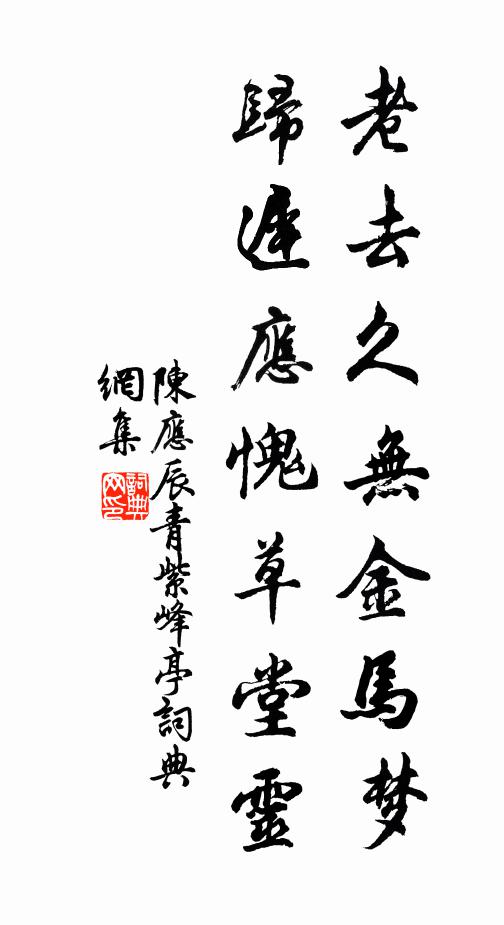 老去久無金馬梦
歸遲應愧草堂靈
陳應辰青紫峰亭詞典
網集
詞典网印